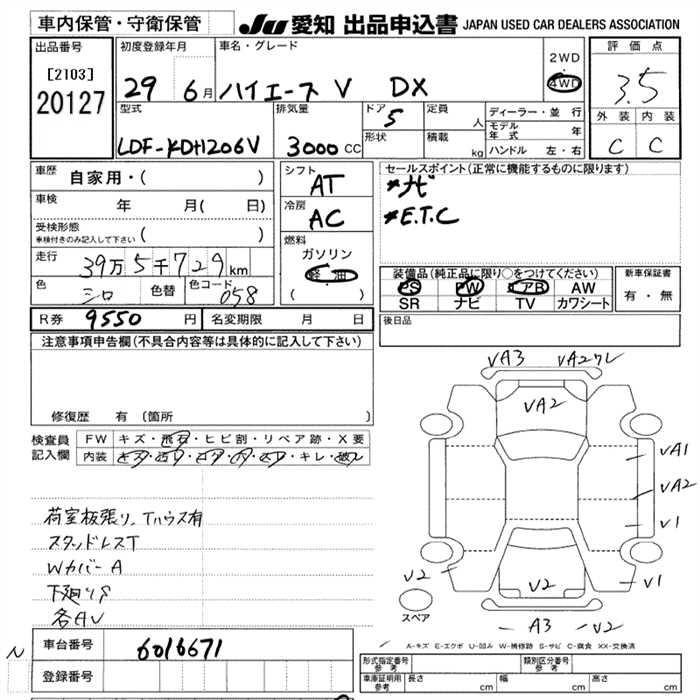 車内保管・守衛保管
JU 愛知 出品申込書 JAPAN USED CAR DEALERS ASSOCIATION
出品番号
[2103]
20127
初度登録年月
29 6月
車名・グレード
ハイエース V DX
2WD
・
4WD
評価点
3.5
外装 内装
C C
型式
LDF-KDH206V
排気量
3000 CC
ドア
5
形状
定員
人
積載
kg
ディーラー・並行
モデル年式 年
ハンドル 左・右
車歴
自家用・( )
車検
年 月( 日)
受検形態
車検付きのみ記入して下さい ( )
走行
39万5千729km
色
シロ
色替
色コード
058
シフト
AT
冷房
AC
燃料
ガソリン
軽油
( )
セールスポイント(正常に機能するものに限ります)
*ナビ
*E.T.C
装備品(純正品に限り○をつけてください)
PS PW エアB AW
SR ナビ TV カワシート
新車保証書
有・無
R券 9550円
名変期限 月 日
後日品
注意事項申告欄(不具合内容等は具体的に記入して下さい)
修復歴 有(箇所 )
検査員記入欄
FW キズ・飛石・ヒビ割・リペア跡・X要
内装
キレ
荷室板張り、Tハウス有
スタッドレスT
WカバーA
下廻りS
各AV
VA3 VA2ワレ
VA2
VA1
VA2
V1
V1
V2
V2
A3 V2
スペア
A-キズ E-エクボ U-凹み W-補修跡 S-サビ C-腐食 XX-交換済
N
車台番号 6016671
登録番号
形式指定番号
参考
類別区分番号
参考
車庫証明用
参考
長さ cm 幅 cm 高さ cm